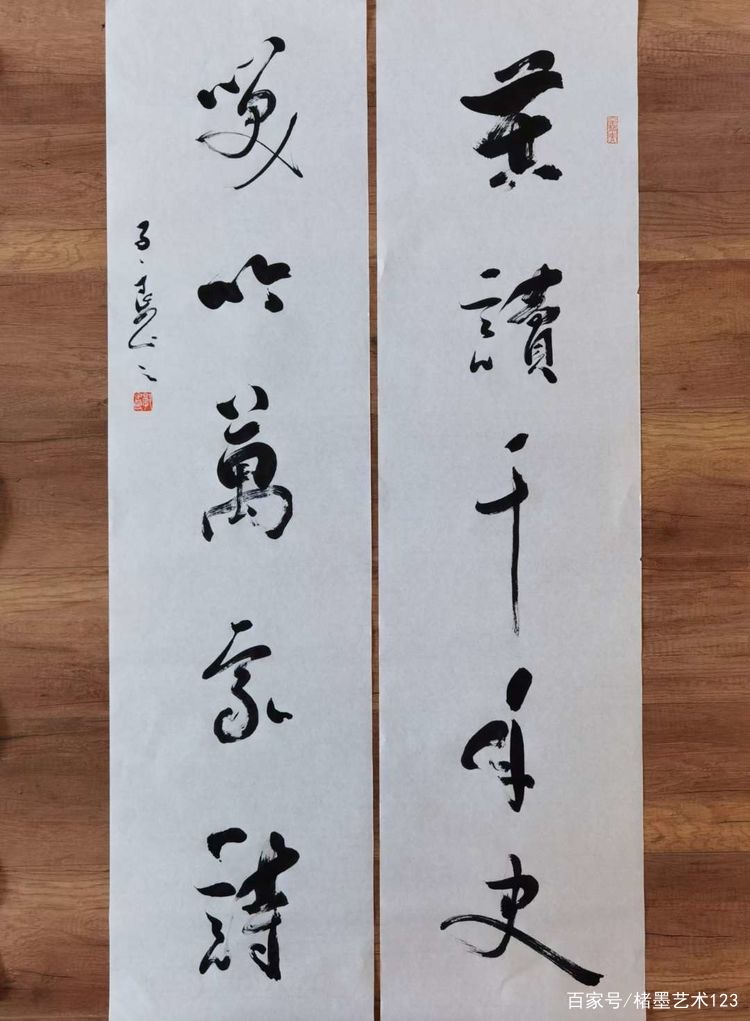 苦讀千年史
笑吟萬家詩
百家号/楮墨艺术123